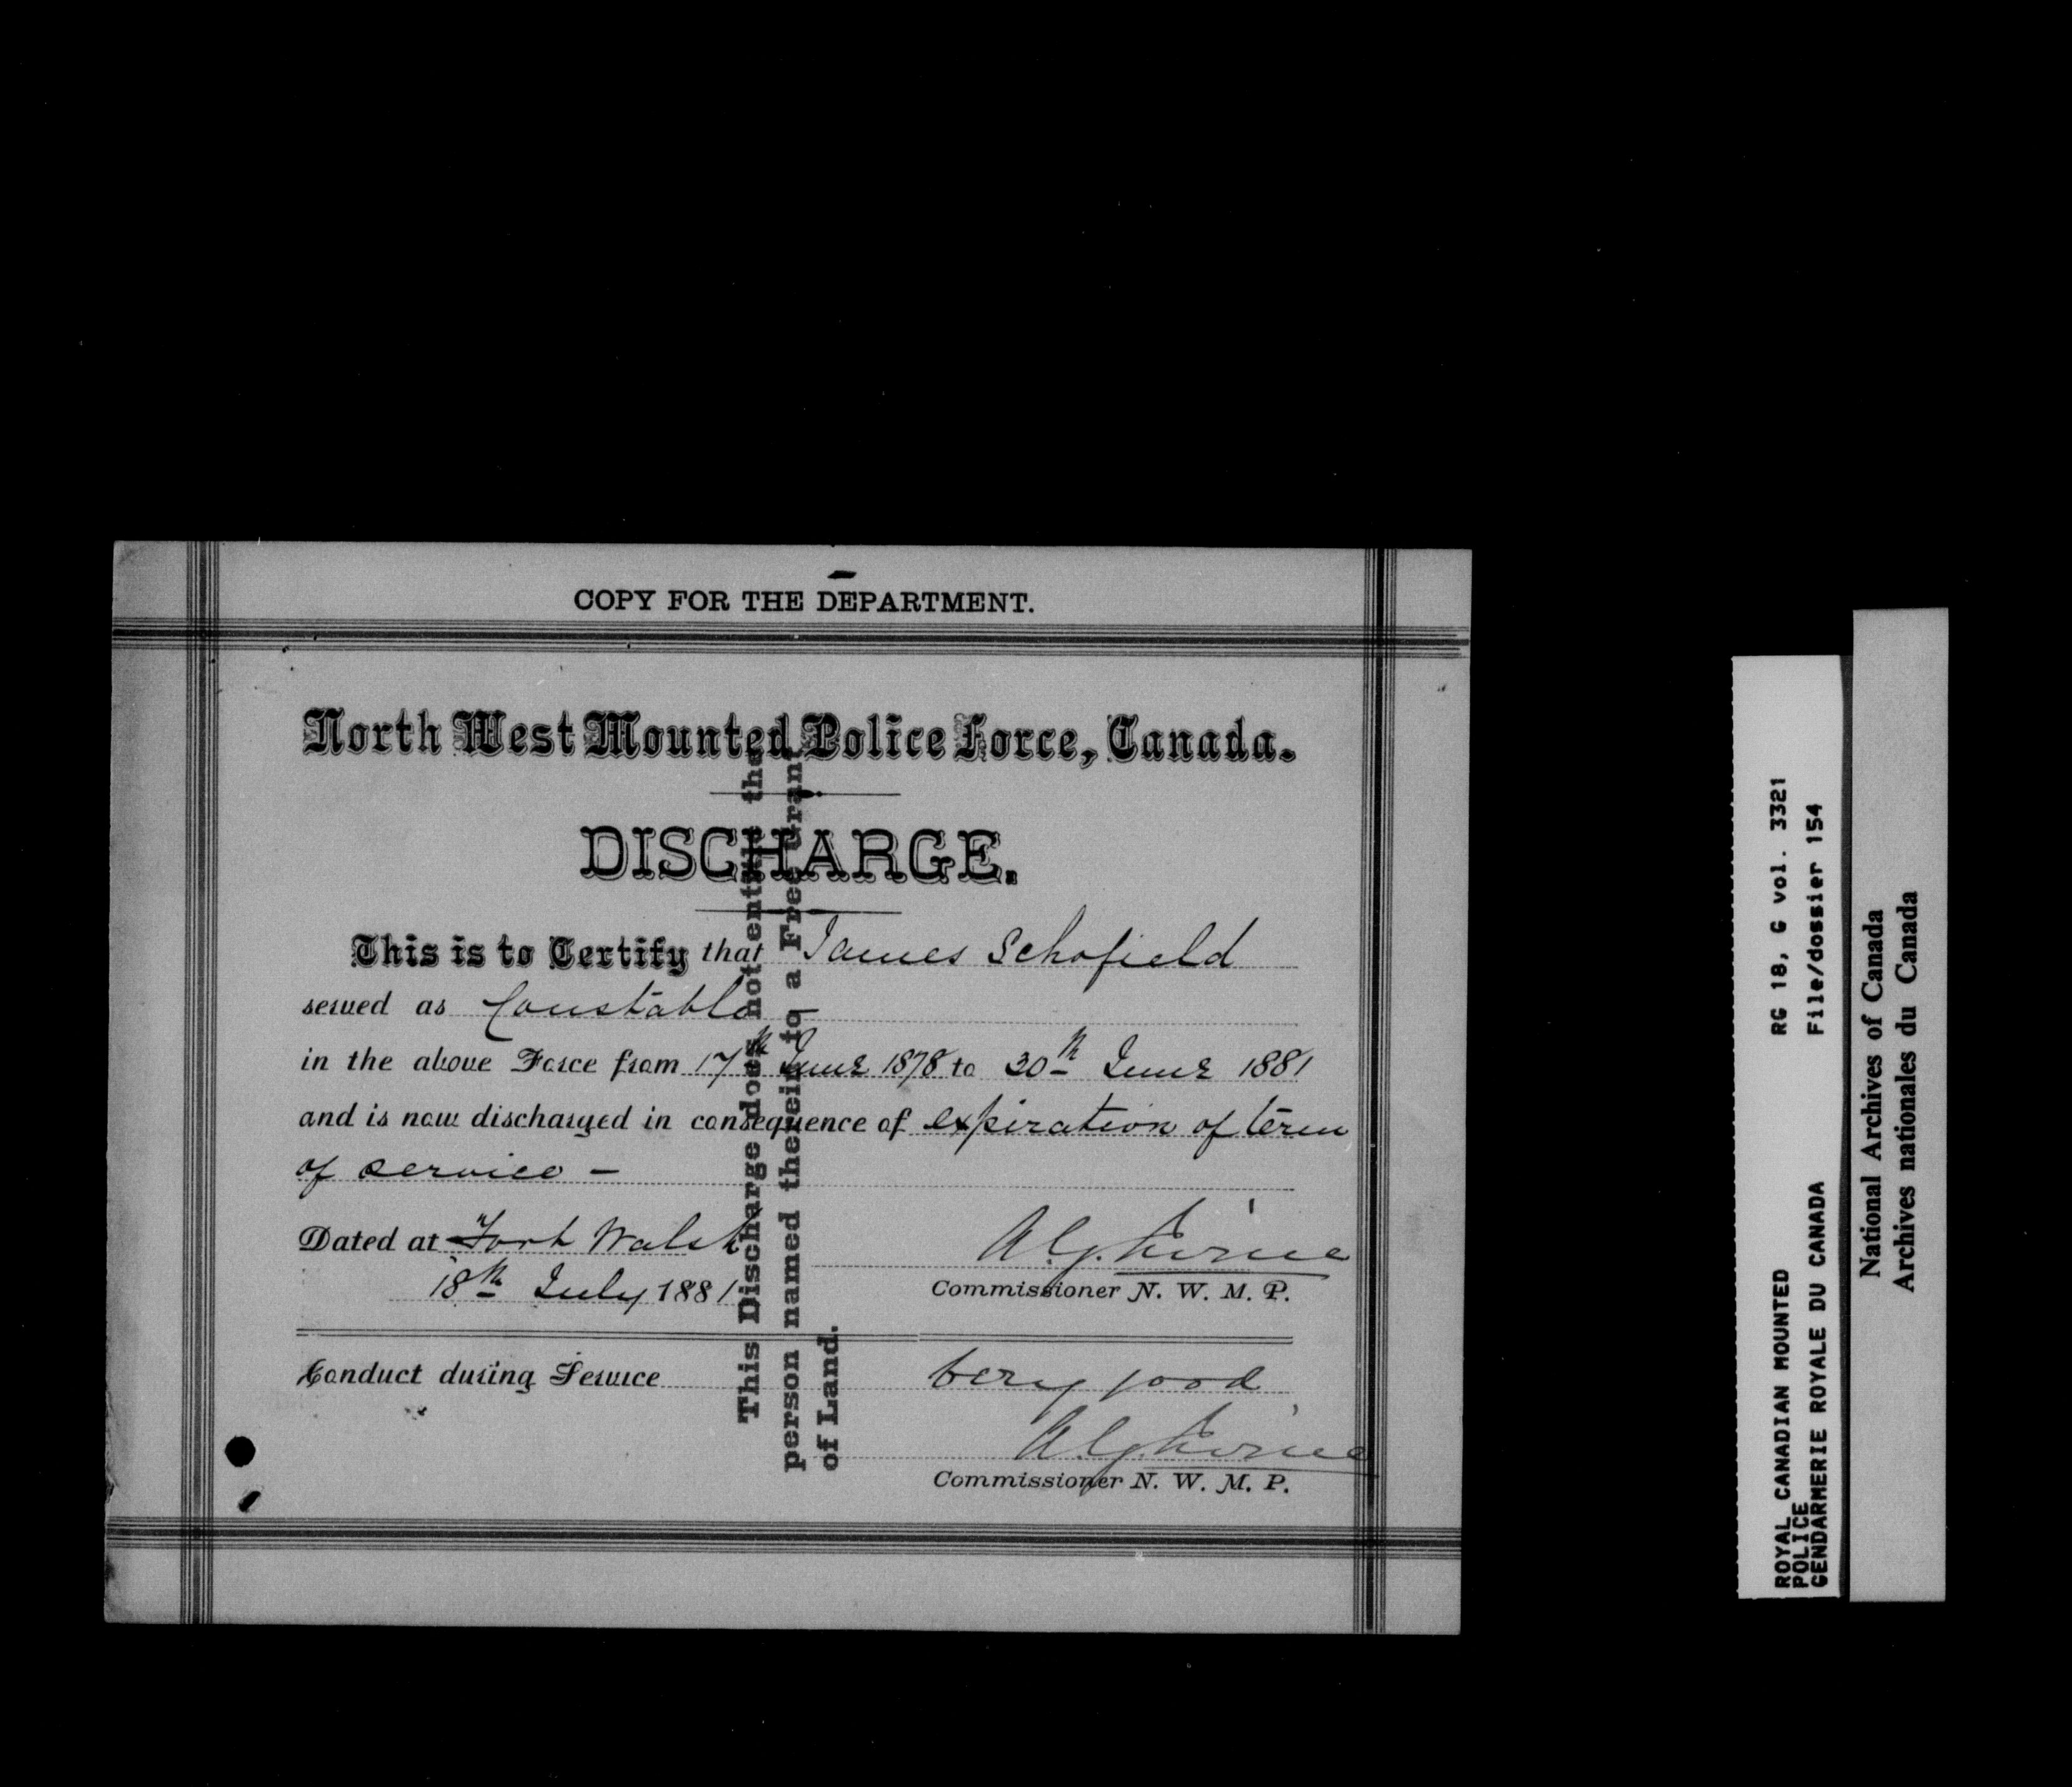 COPY FOR THE DEPARTMENT.
North West Mounted Police Force, Canada.
DISCHARGE.
This is to Certify that James Schofield
served as Constable
in the above Force from 17th June 1878 to 30th June 1881
and is now discharged in consequence of expiration of term
of service —
Dated at Fort Walsh
18th July 1881
A. G. Irvine
Commissioner N. W. M. P.
Conduct during Service very good
A. G. Irvine
Commissioner N. W. M. P.
This Discharge does not entitle the
person named therein to a Free Grant
of Land.
ROYAL CANADIAN MOUNTED RG 18, G vol. 3321
POLICE
GENDARMERIE ROYALE DU CANADA File/dossier 154
National Archives of Canada
Archives nationales du Canada